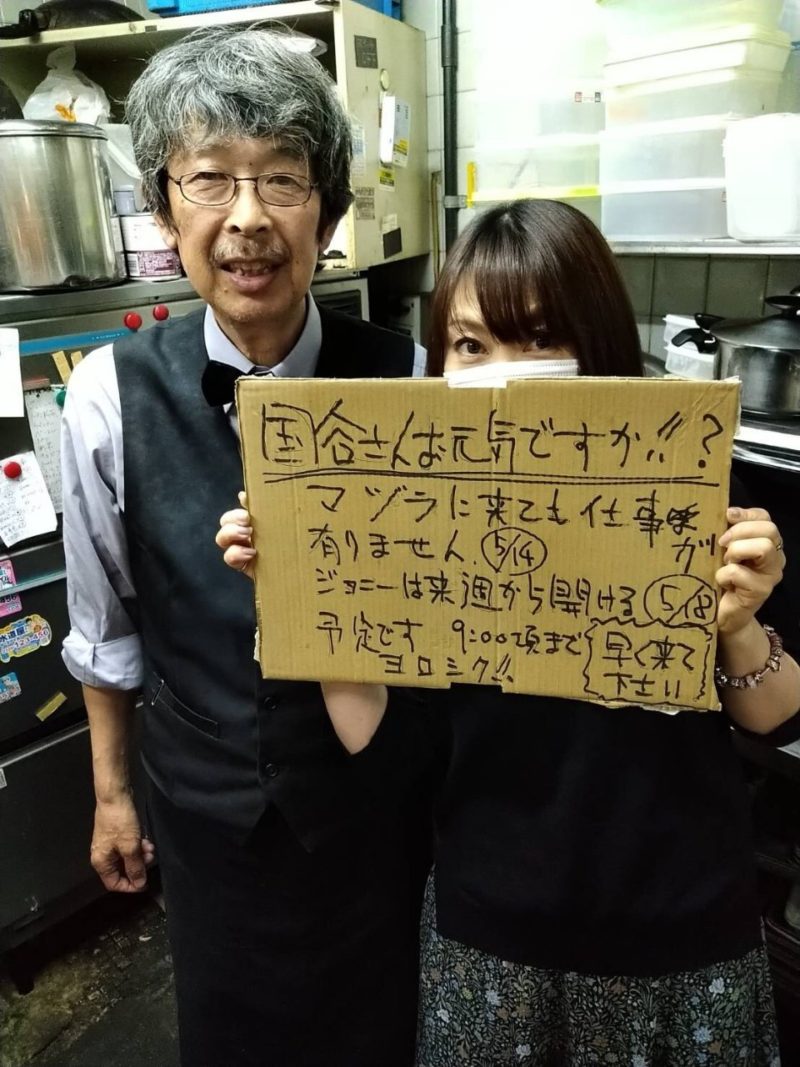 国谷さんお元気ですか!!?
マヅラに来ても仕事が
有りません。5/14
ジョニーは来週から開ける 5/18
予定です 9:00頃まで
ヨロシク!!
早く来て
下さい